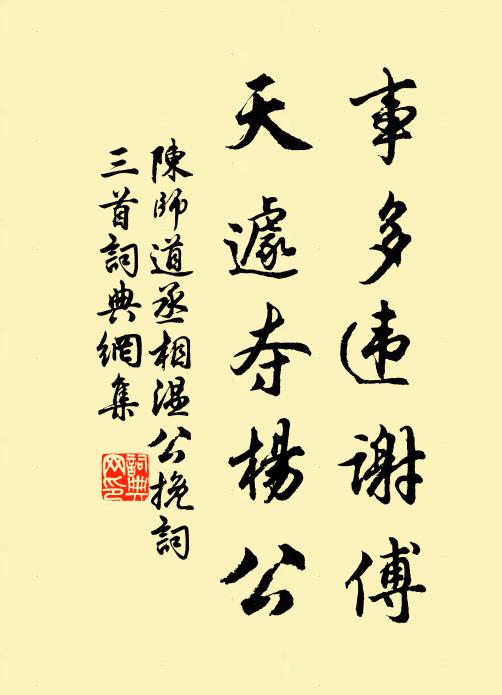 事多违謝傅
天遽夺楊公
陳師道丞相温公挽詞
三首詞典網集
詞典网印